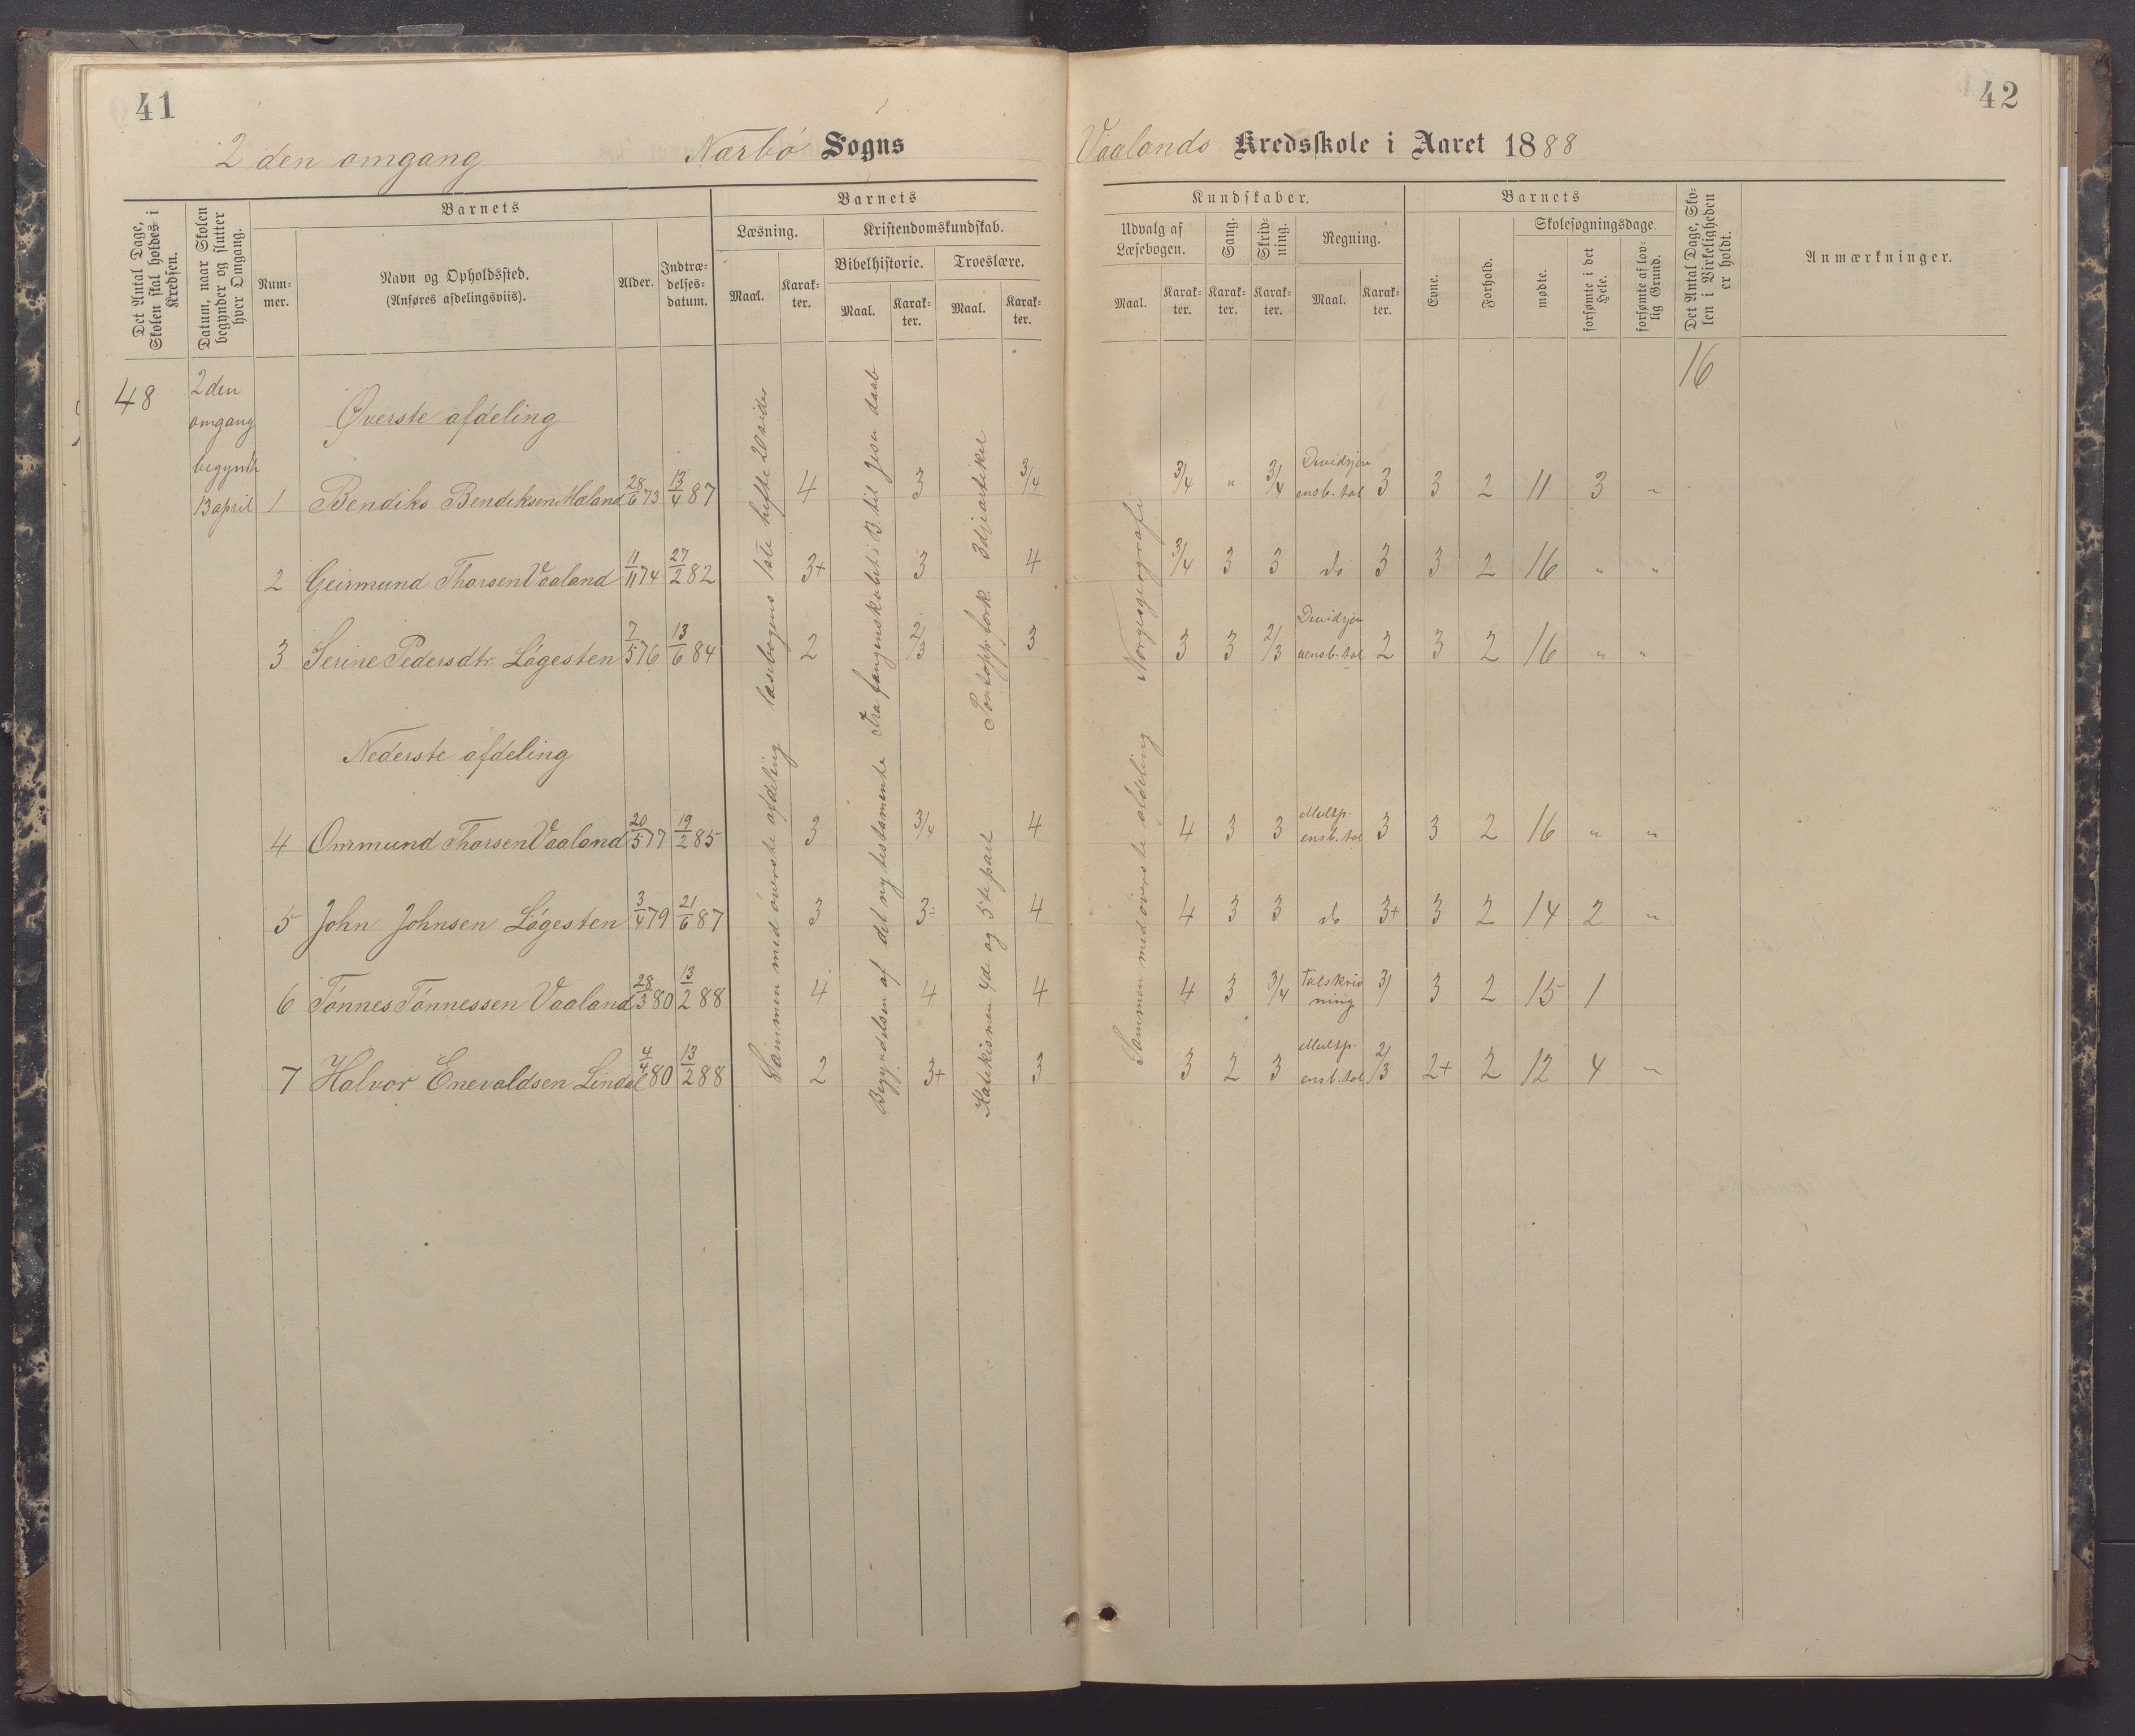 41
2den omgang Nærbø Sogns
Det Antal Dage, Skolen skal holdes i Kredsen.
Datum, naar Skolen begynder og slutter hver Omgang.
Barnets
Num-
mer.
Navn og Opholdssted.
(Anføres afdelingsviis).
Alder.
Indtræ-
delses-
datum.
Barnets
Læsning.
Maal.
Karak-
ter.
Kristendomskundskab.
Bibelhistorie.
Maal.
Karak-
ter.
Troeslære.
Maal.
Karak-
ter.
48
2den
omgang
begyndte
13 april
Øverste afdeling
1 Bendiks Bendiksen Mæland 28/6 73 13/4 87 4 3 3/4
2 Geirmund Thorsen Vaaland 11/11 74 27/2 82 3+ 3 4
3 Serine Pedersdtr. Løgesten 7/5 76 13/6 84 2 2/3 3
Nederste afdeling
4 Ommund Thorsen Vaaland 20/5 77 19/2 85 3 3/4 4
5 John Johnsen Løgesten 3/4 79 21/6 87 3 3÷ 4
6 Tønnes Tønnessen Vaaland 28/3 80 13/2 88 4 4 4
7 Halvor Enevaldsen Lindal 4/4 80 13/2 88 2 3+ 3
læsebogens 1ste hefte 20 sider
Sammen med øverste afdeling
Fra fangenskabet i B. til Jesu daab
Begyndelsen af det ny testamente
Pontopp. fork. 3dje artikel
Katekismen 4de og 5te part
42
Vaalands Kredsskole i Aaret 1888
Kundskaber.
Udvalg af
Læsebogen.
Maal.
Karak-
ter.
Sang.
Karak-
ter.
Skriv-
ning.
Karak-
ter.
Regning.
Maal.
Karak-
ter.
Barnets
Evne.
Forhold.
Skolesøgningsdage
mødte.
forsømte i det
Hele.
forsømte af lov-
lig Grund.
Det Antal Dage, Sko-
len i Virkeligheden
er holdt.
Anmærkninger.
16
Norges geografi
Sammen med øverste afdeling
3/4 " 3/4 Dividsjon
ensb. tal 3 3 2 11 3 "
3/4 3 3 do 3 3 2 16 " "
3 3 2/3 Dividsjon
uensb. tal 2 3 2 16 " "
4 3 3 Multp.
ensb. tal 3 3 2 16 " "
4 3 3 do 3+ 3 2 14 2 "
4 3 3/4 Talskriv
ning 3/ 3 2 15 1
3 2 3 Multp.
ensb. tal 2/3 2+ 2 12 4 "